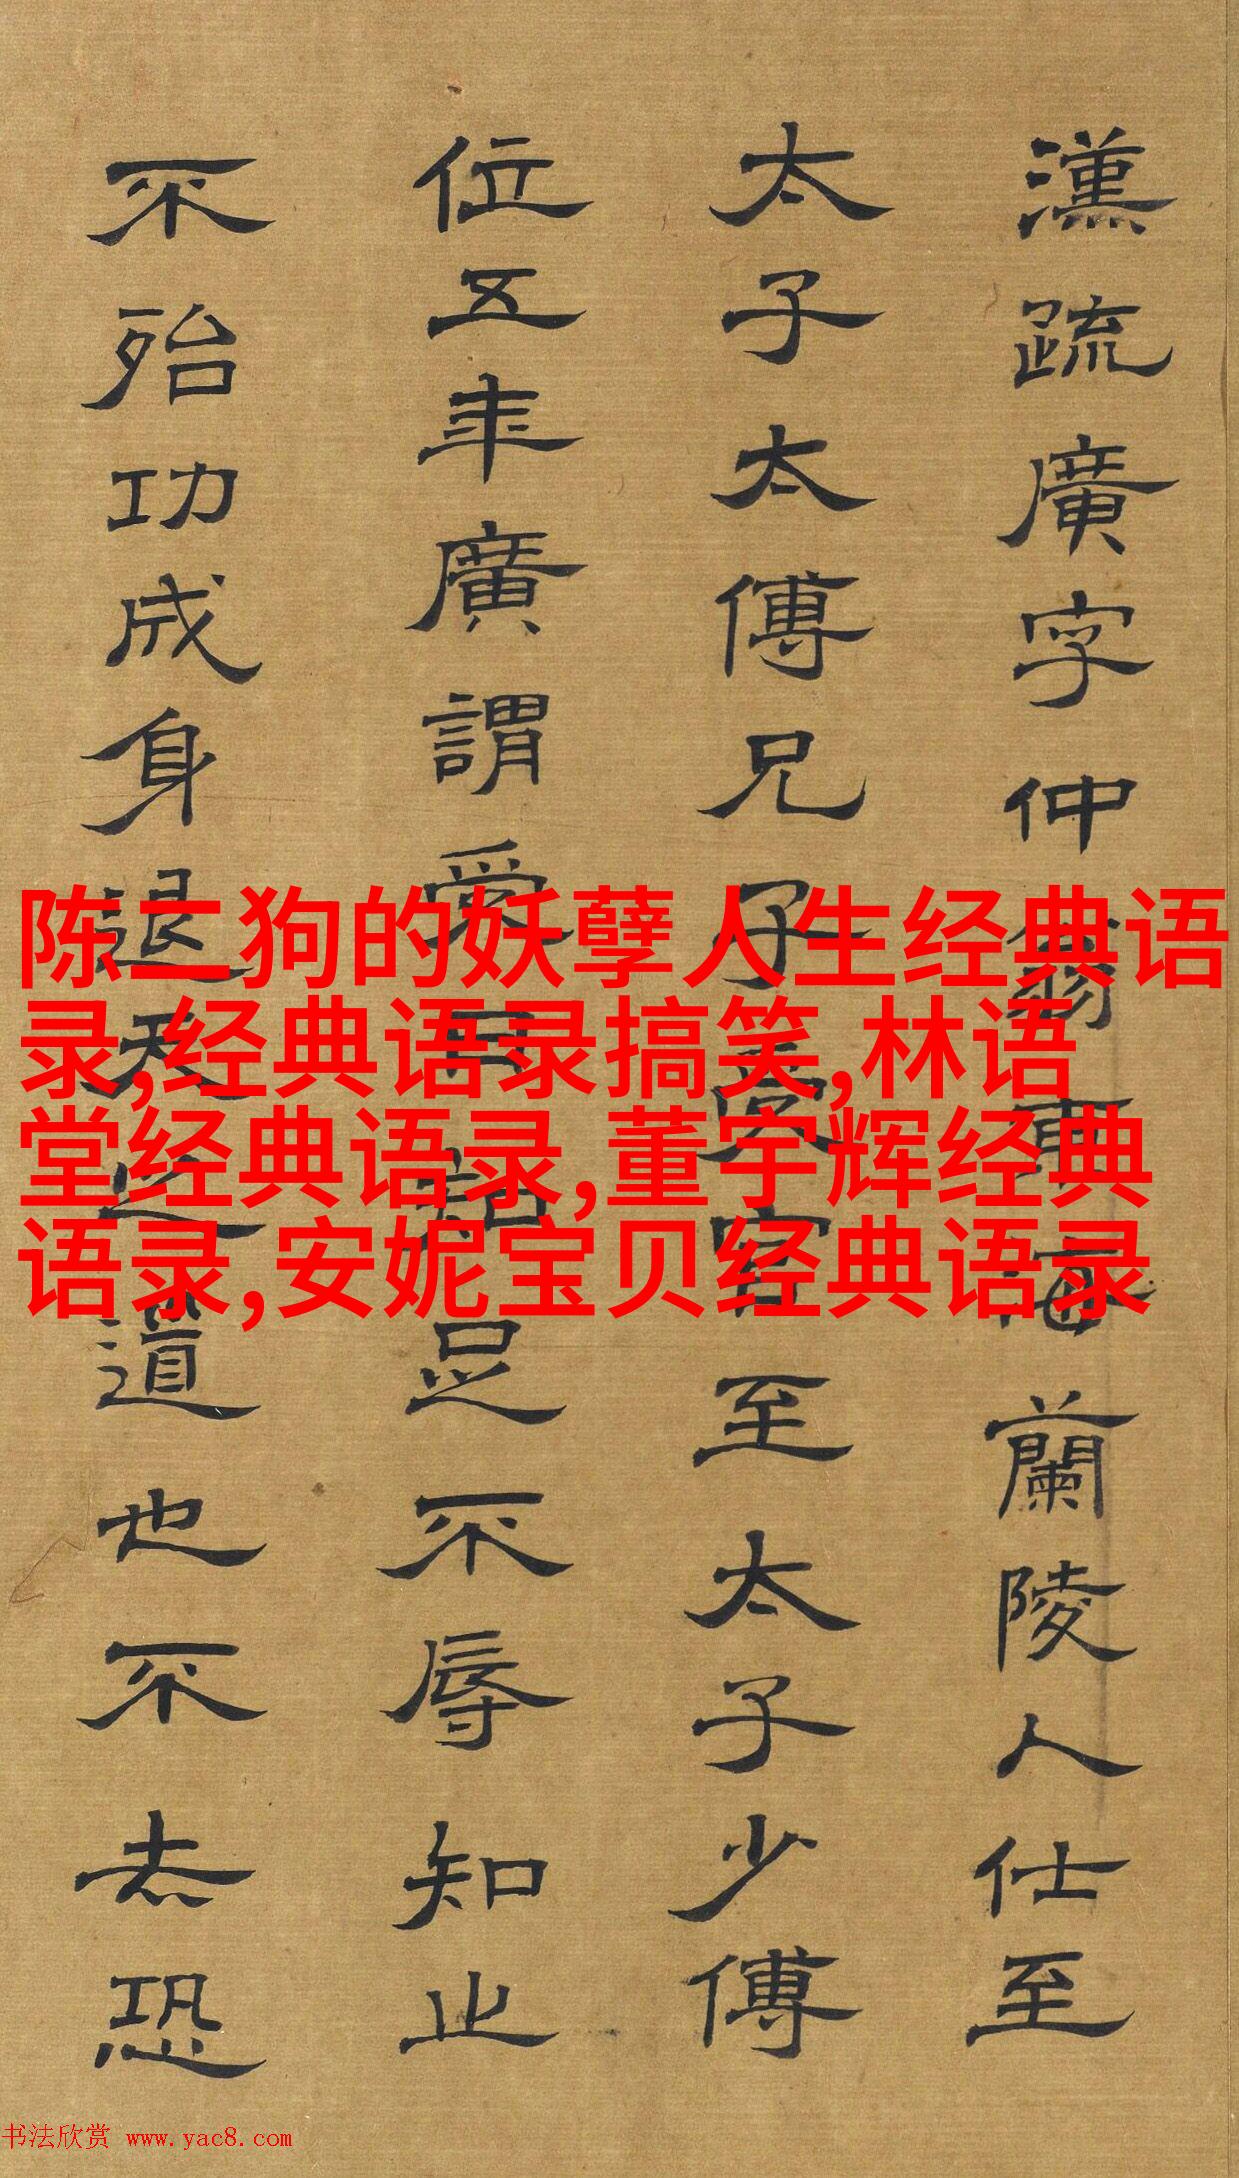 漢疏廣字仲翁東海蘭陵人仕至
太子太傅兄子受官至太子少傅
位五年廣謂受曰知足不辱知止
不殆功成身退天之道也不去恐
陈二狗的妖孽人生经典语
录,经典语录搞笑,林语
堂经典语录,董宇辉经典
语录,安妮宝贝经典语录
书法欣赏 www.yac8.com